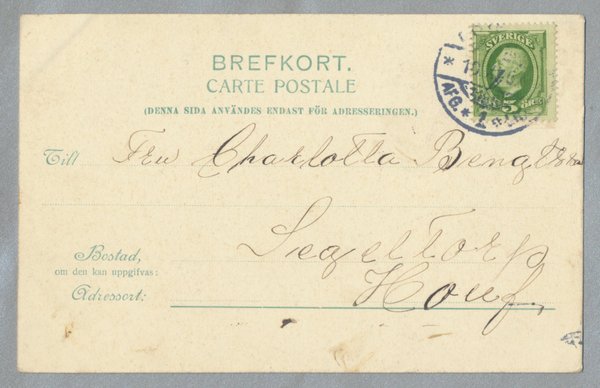 BREFKORT.
CARTE POSTALE
(DENNA SIDA ANVÄNDES ENDAST FÖR ADRESSERINGEN.)
SVERIGE
5
AFG.
1
Till Fru Charlotta Bengtson
Segeltorp
Bostad,
om den kan uppgifvas:
Adressort: